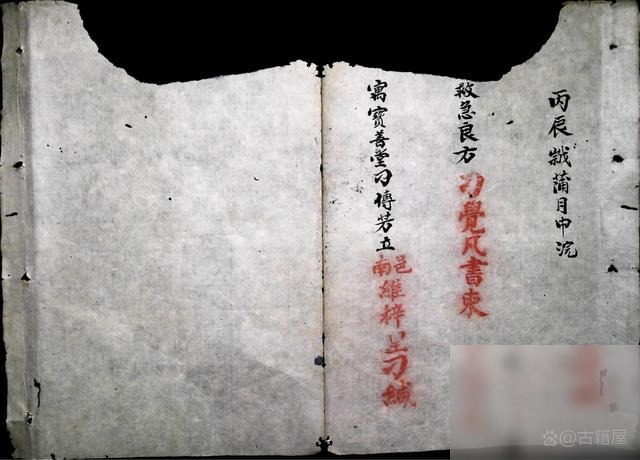 丙辰歲蒲月中浣
救急良方 刁覺凡書柬
寓寶善堂刁傳芳立 邑南維梓刁緘
@古籍屋